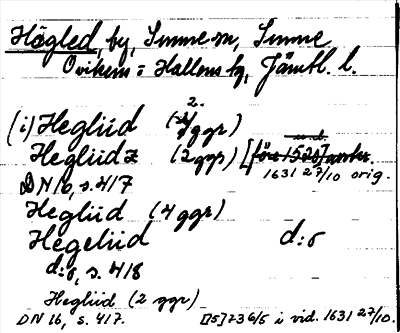 Högled, by, Sunne sn, Sunne
Ovikens = Hallens tg, Jämtl. l.
2.
(i) Hegliid (4 ggr)
Hegliidz (2 ggr) [före 1520]
1631 27/10 orig.
DN 16, s. 417
Hegliid (4 ggr)
Hegeliid d:o
d:o, s. 418
Hegliid (2 ggr)
DN 16, s. 417. [15]23 6/5 i vid. 1631 27/10.